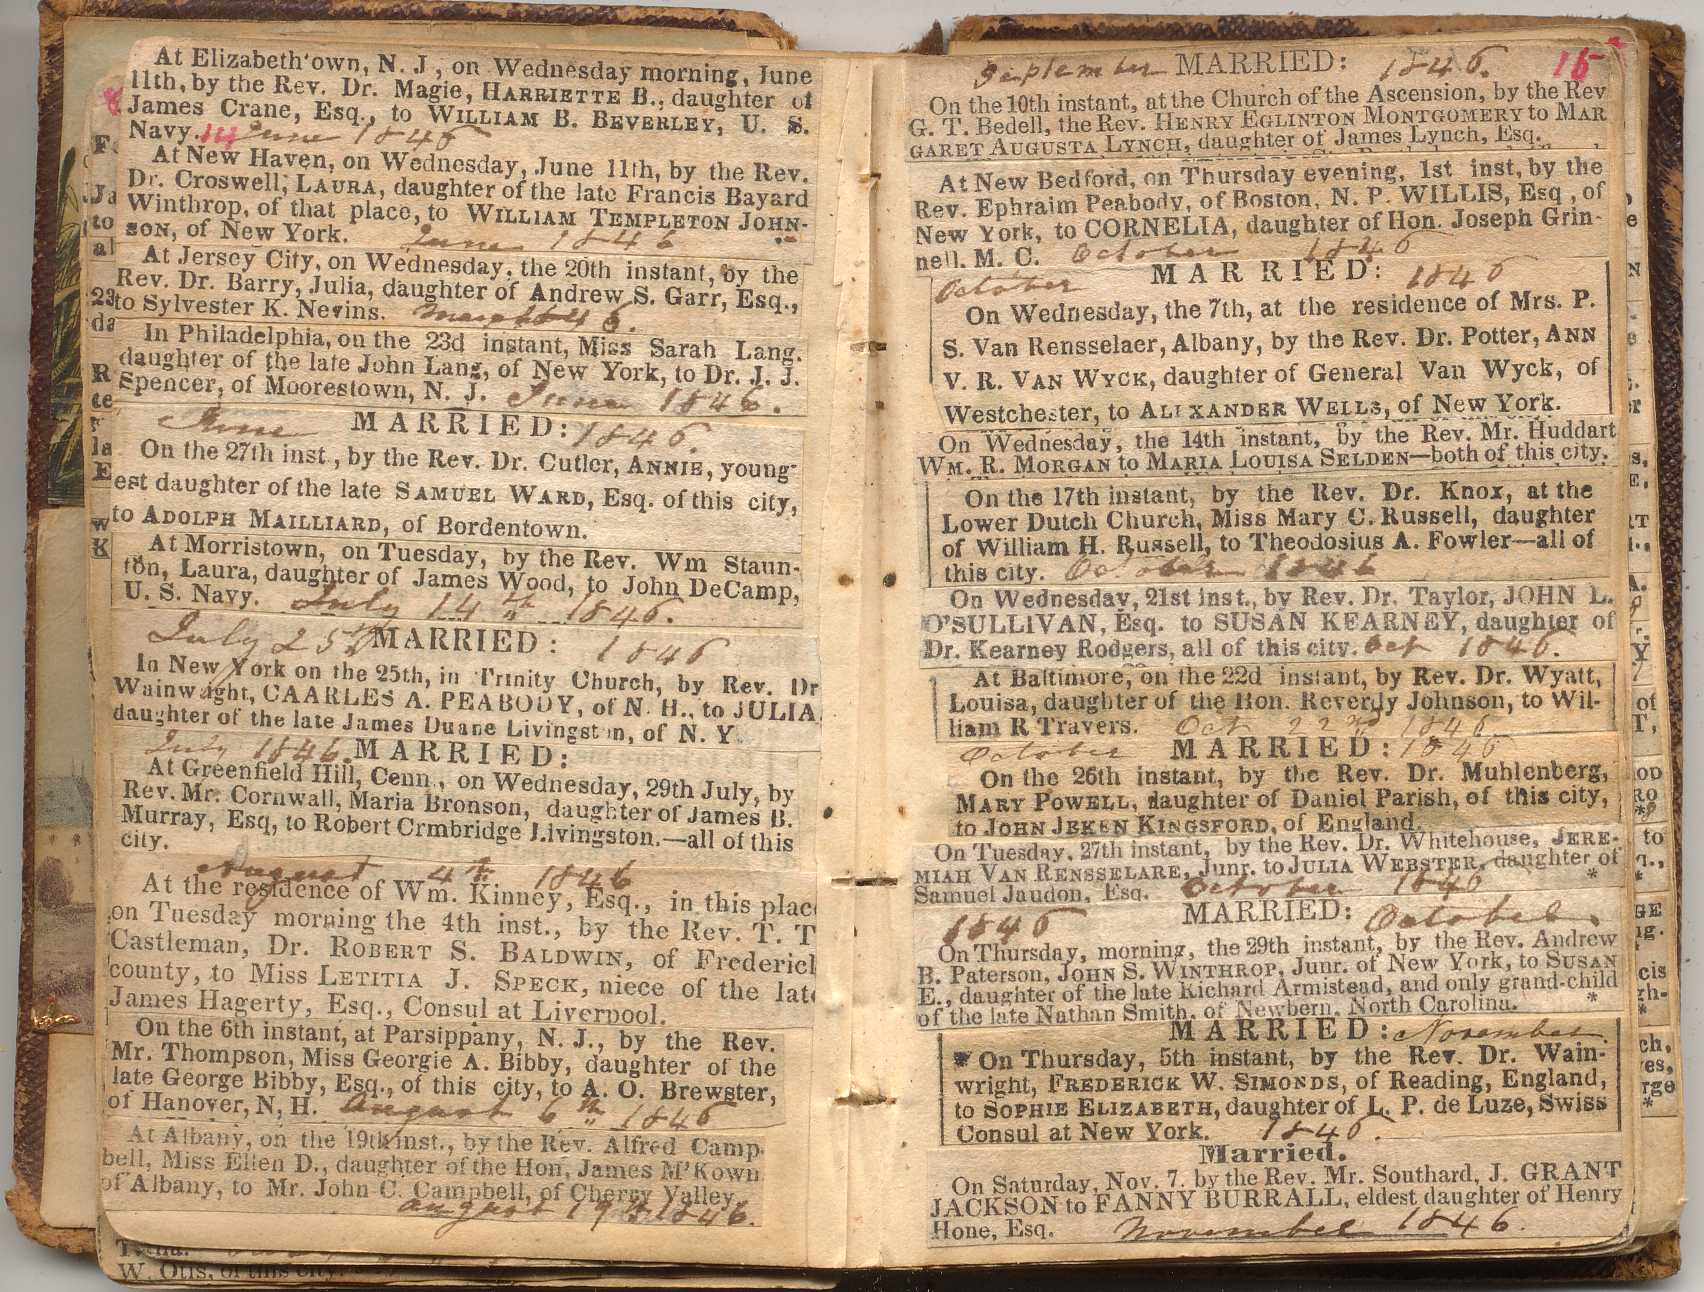 At Elizabeth'own, N. J, on Wednesday morning, June
11th, by the Rev. Dr. Magie, HARRIETTE B., daughter of
James Crane, Esq., to WILLIAM B. BEVERLEY, U. S.
Navy. June 1846
At New Haven, on Wednesday, June 11th, by the Rev.
Dr. Croswell, LAURA, daughter of the late Francis Bayard
Winthrop, of that place, to WILLIAM TEMPLETON JOHN-
SON, of New York. June 1846
At Jersey City, on Wednesday, the 20th instant, by the
Rev. Dr. Barry, Julia, daughter of Andrew S. Garr, Esq.,
to Sylvester K. Nevins.
In Philadelphia, on the 23d instant, Miss Sarah Lang.
daughter of the late John Lang, of New York, to Dr. J. J.
Spencer, of Moorestown, N. J. June 1846.
June MARRIED: 1846
On the 27th inst., by the Rev. Dr. Cutler, ANNIE, young-
est daughter of the late SAMUEL WARD, Esq. of this city,
to ADOLPH MAILLIARD, of Bordentown.
At Morristown, on Tuesday, by the Rev. Wm Staun-
ton, Laura, daughter of James Wood, to John DeCamp,
U. S. Navy. July 14th 1846.
July 25th MARRIED: 1846
In New York on the 25th, in Trinity Church, by Rev. Dr
Wainwright, CAARLES A. PEABODY, of N. H., to JULIA
daughter of the late James Duane Livingston, of N. Y.
July 1846. MARRIED:
At Greenfield Hill, Cenn., on Wednesday, 29th July, by
Rev. Mr. Cornwall, Maria Bronson, daughter of James B.
Murray, Esq, to Robert Crmbridge Livingston.—all of this
city.
August 4th 1846
At the residence of Wm. Kinney, Esq., in this place
on Tuesday morning the 4th inst., by the Rev. T. T
Castleman, Dr. ROBERT S. BALDWIN, of Frederick
county, to Miss LETITIA J. SPECK, niece of the late
James Hagerty, Esq., Consul at Liverpool.
On the 6th instant, at Parsippany, N. J., by the Rev.
Mr. Thompson, Miss Georgie A. Bibby, daughter of the
late George Bibby, Esq., of this city, to A. O. Brewster,
of Hanover, N, H. August 6th 1846
At Albany, on the 19th inst., by the Rev. Alfred Camp-
bell, Miss Ellen D., daughter of the Hon, James M'Kown
of Albany, to Mr. John C. Campbell, of Cherry Valley.
August 19th 1846.
W. Otis, of this city.
September MARRIED: 1846. 15
On the 10th instant, at the Church of the Ascension, by the Rev
G. T. Bedell, the Rev. HENRY EGLINTON MONTGOMERY to MAR
GARET AUGUSTA LYNCH, daughter of James Lynch, Esq.
At New Bedford, on Thursday evening, 1st inst, by the
Rev. Ephraim Peabody, of Boston, N. P. WILLIS, Esq, of
New York, to CORNELIA, daughter of Hon. Joseph Grin-
nell. M. C. October 1846
October MARRIED: 1846
On Wednesday, the 7th, at the residence of Mrs. P.
S. Van Rensselaer, Albany, by the Rev. Dr. Potter, ANN
V. R. VAN WYCK, daughter of General Van Wyck, of
Westchester, to ALEXANDER WELLS, of New York.
On Wednesday, the 14th instant, by the Rev. Mr. Huddart
WM. R. MORGAN to MARIA LOUISA SELDEN—both of this city.
On the 17th instant, by the Rev. Dr. Knox, at the
Lower Dutch Church, Miss Mary C. Russell, daughter
of William H. Russell, to Theodosius A. Fowler—all of
this city. October 1846
On Wednesday, 21st inst., by Rev. Dr. Taylor, JOHN L.
O'SULLIVAN, Esq. to SUSAN KEARNEY, daughter of
Dr. Kearney Rodgers, all of this city. Oct 1846.
At Baltimore, on the 22d instant, by Rev. Dr. Wyatt,
Louisa, daughter of the Hon. Reverdy Johnson, to Wil-
liam R Travers. Oct 22nd 1846
October MARRIED: 1846
On the 26th instant, by the Rev. Dr. Muhlenberg,
MARY POWELL, daughter of Daniel Parish, of this city,
to JOHN JEKEN KINGSFORD, of England.
On Tuesday, 27th instant, by the Rev. Dr. Whitehouse, JERE-
MIAH VAN RENSSELARE, Junr. to JULIA WEBSTER, daughter of
Samuel Jaudon, Esq. October 1846 *
1846 MARRIED: October
On Thursday, morning, the 29th instant, by the Rev. Andrew
B. Paterson, JOHN S. WINTHROP, Junr. of New York, to SUSAN
E., daughter of the late Richard Armistead, and only grand-child
of the late Nathan Smith, of Newbern, North Carolina. *
MARRIED: November
On Thursday, 5th instant, by the Rev. Dr. Wain-
wright, FREDERICK W. SIMONDS, of Reading, England,
to SOPHIE ELIZABETH, daughter of L. P. de Luze, Swiss
Consul at New York. 1846.
Married.
On Saturday, Nov. 7. by the Rev. Mr. Southard, J. GRANT
JACKSON to FANNY BURRALL, eldest daughter of Henry
Hone, Esq. November 1846.